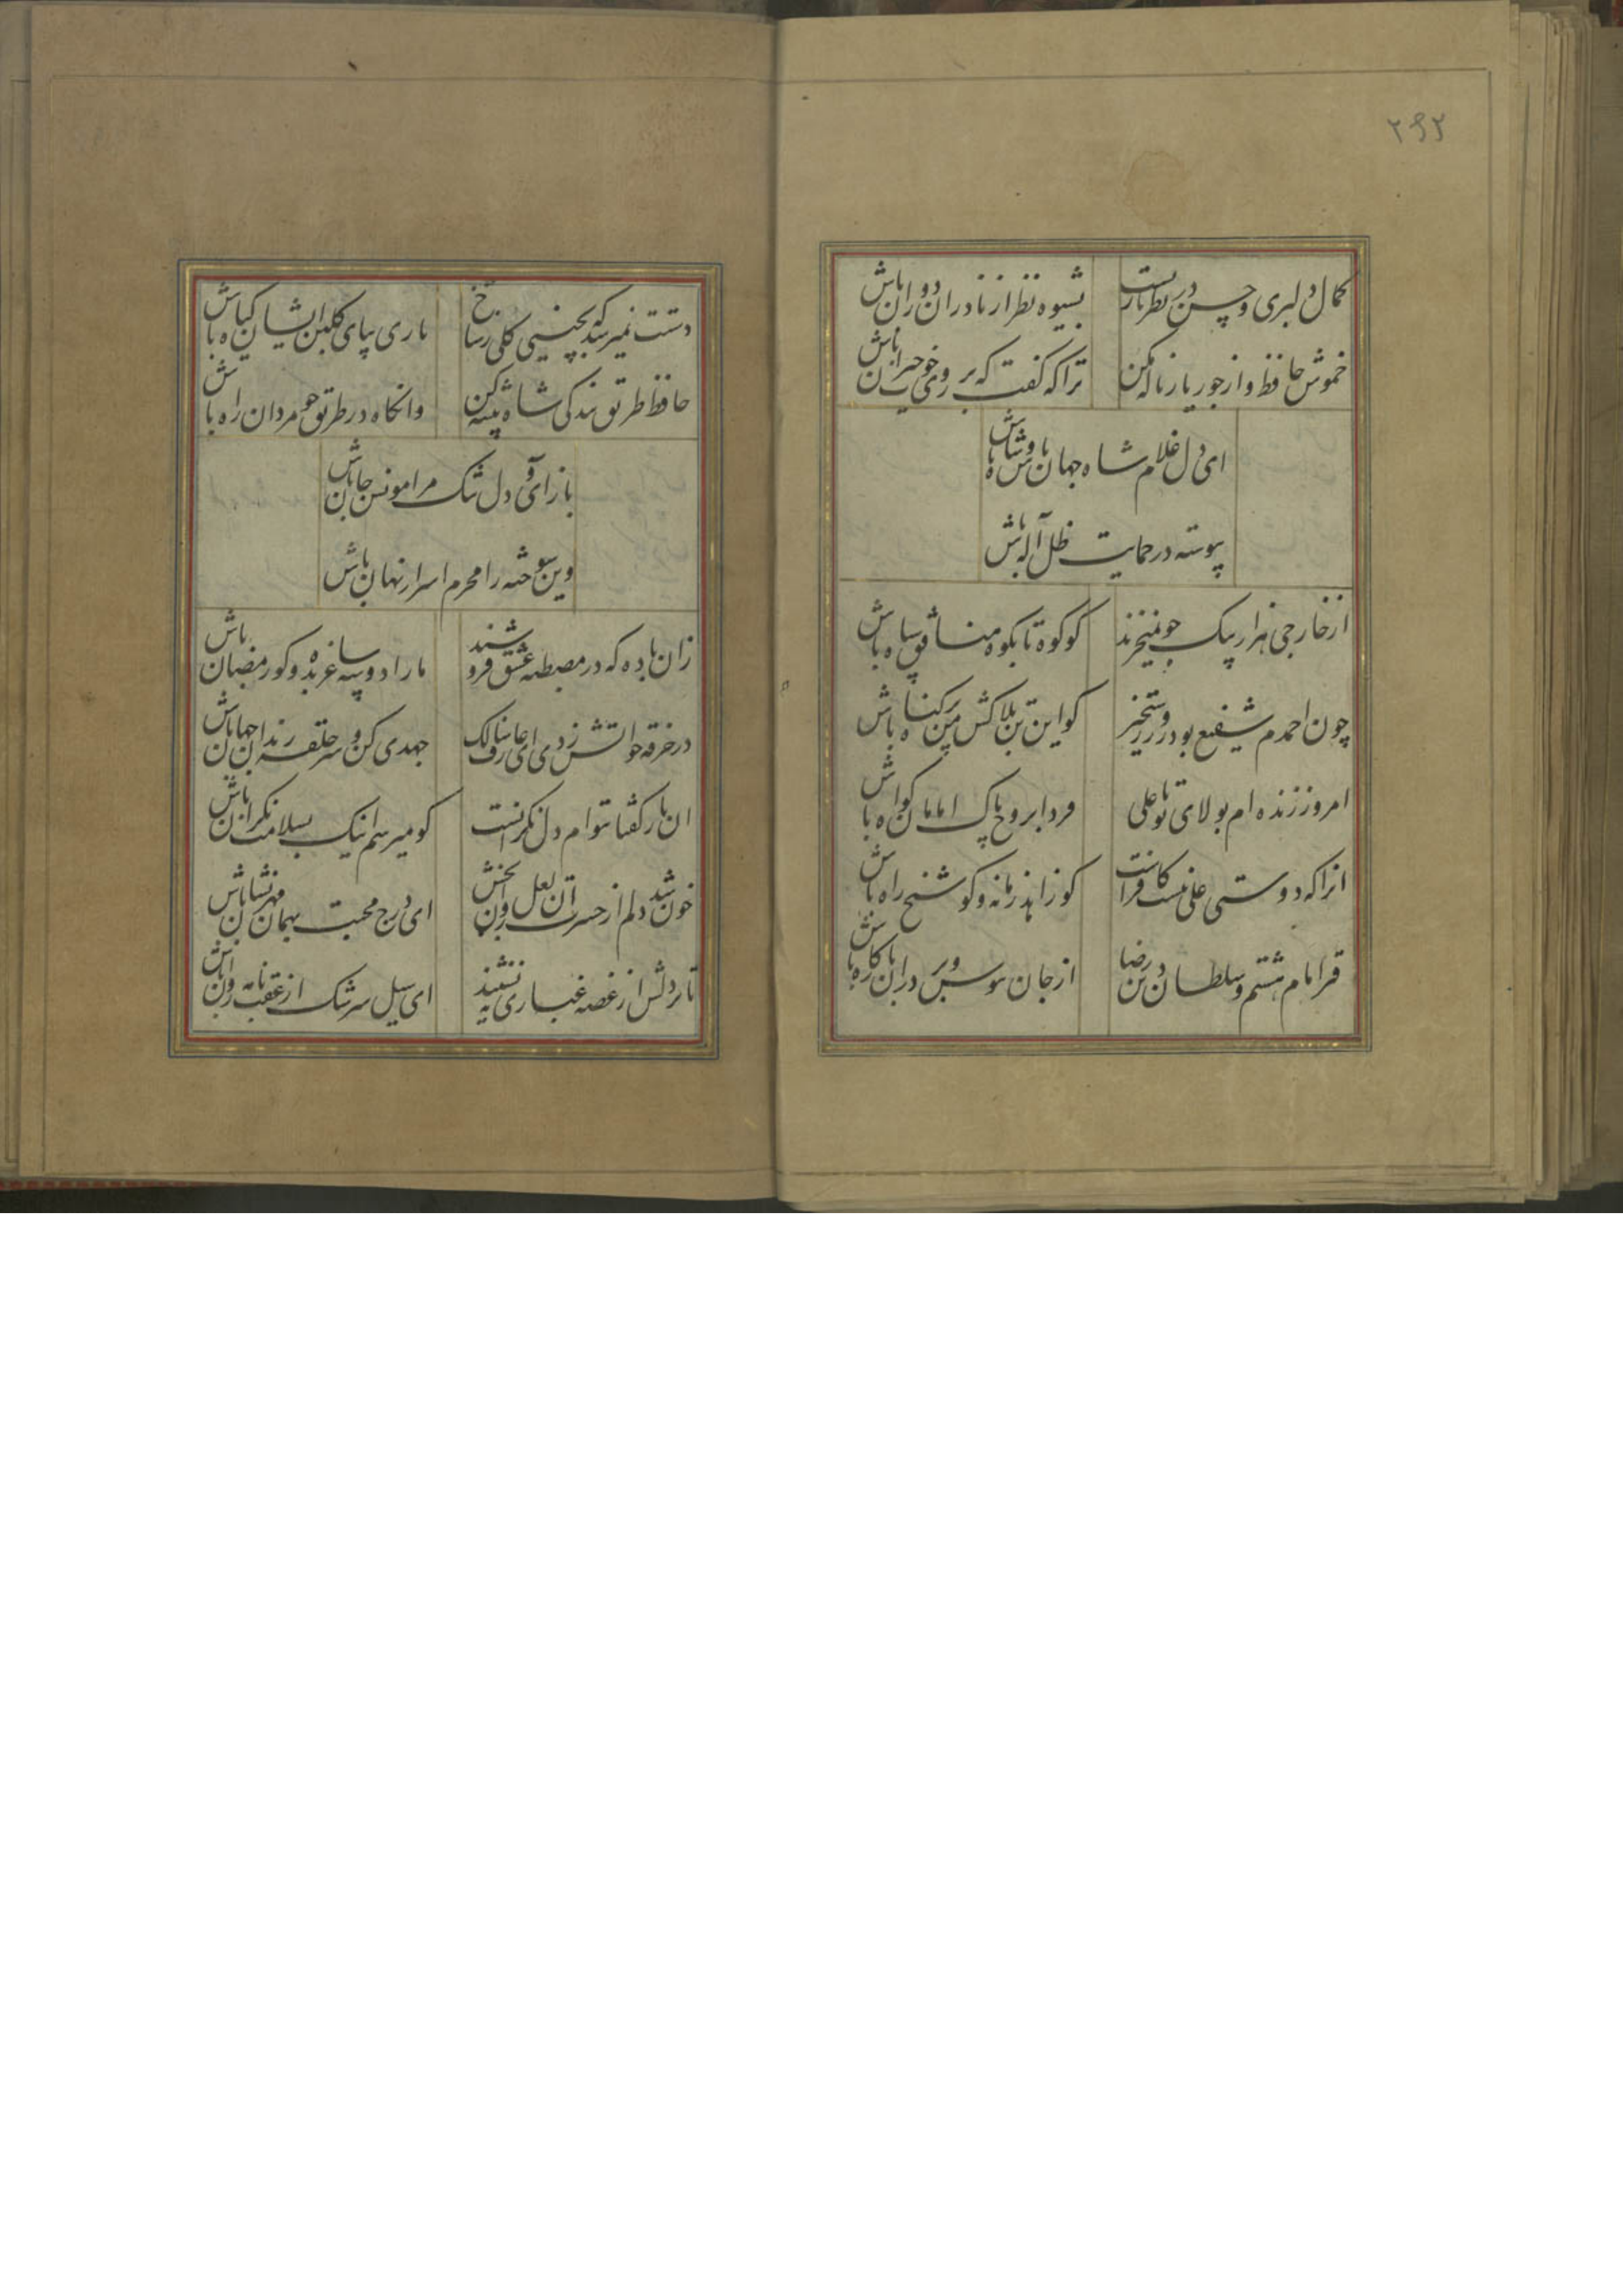 ۲۹۲
کمال دلبری و حسن در نظربازیست
بشیوه نظر از نادران دوران باش
خموش حافظ و از جور یار ناله مکن
ترا که گفت که بر روی خوب حیران باش
ای دل غلام شاه جهان باش و شاه باش
پیوسته در حمایت ظل آله باش
از خارجی هزار بیک جو نمیخرند
کو کوه تا بکوه منافق سپاه باش
چون احمدم شفیع بود روز رستخیز
کو این تن بلاکش من پر کناه باش
امروز زنده ام بولای تو یا علی
فردا بروح پاک امامان کواه باش
انرا که دوستی علی نیست کافرست
کو زاهد زمانه و کو شیخ راه باش
قبر امام هشتم و سلطان دین رضا
از جان ببوس و بر در ان بارکاه باش
دستت نمیرسد که بچینی کلی ز شاخ
باری بپای کلبن ایشان کیاه باش
حافظ طریق بندکی شاه پیشه کن
وانکاه در طریق چو مردان راه باش
باز آی و دل تنک مرا مونس جان باش
وین سوخته را محرم اسرار نهان باش
زان باده که در مصطبه عشق فروشند
ما را دو سه ساغر بده و کو رمضان باش
در خرقه چو اتش زدی ای عارف سالک
جهدی کن و سر حلقه رندان جهان باش
ان یار که گفتا بتوام دل نکرانست
کو میرسم اینک بسلامت نکران باش
خون شد دلم از حسرت آن لعل روان بخش
ای درج محبت بهمان مهر و نشان باش
تا بر دلش از غصه غباری ننشیند
ای سیل سرشک از عقب نامه روان باش